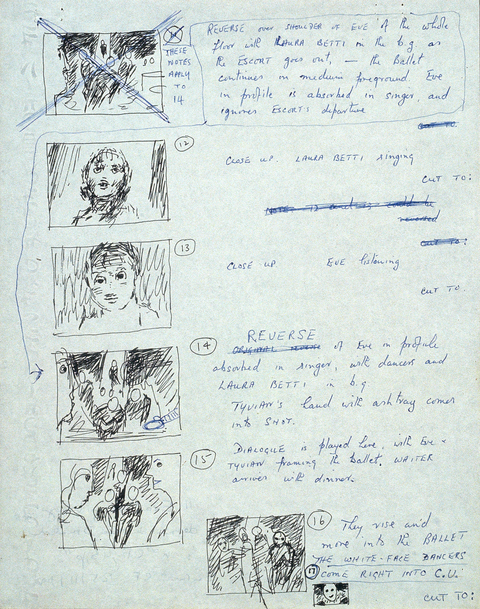 REVERSE over SHOULDER of EVE of the whole
floor with LAURA BETTI in the b.g as
the ESCORT goes out, — the Ballet
continues in medium foreground Eve
in profile is absorbed in singer, and
ignores ESCORTS departure
THESE
NOTES
APPLY
TO
14
12
CLOSE UP. LAURA BETTI singing
CUT TO:
13
CLOSE UP EVE listening
CUT TO.
14
REVERSE
of Eve in profile
absorbed in singer, with dancers and
LAURA BETTI in b.g
TYVIAN'S hand with ashtray comes
into SHOT.
15
DIALOGUE is played here, with Eve +
TYVIAN framing the ballet. WAITER
arrives with dinner.
16
They rise and
move into the BALLET
THE WHITE-FACE DANCERS
17
COME RIGHT INTO C.U.
CUT TO: